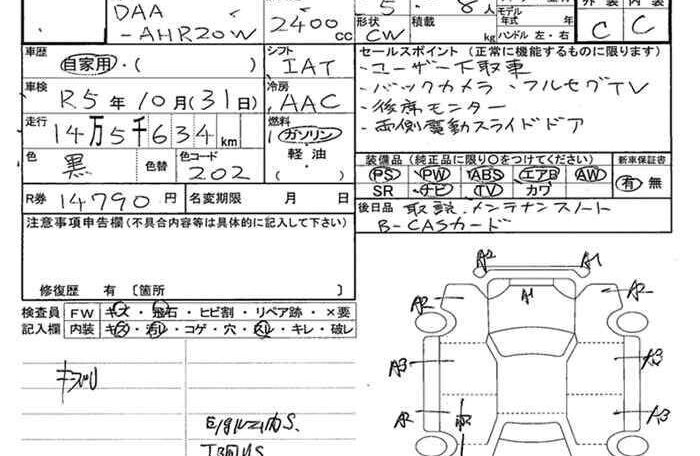 DAA
-AHR20W
2400 CC
5 8人
形状 CW 積載 kg
モデル
年式 年
ハンドル 左・右
外装 内装
C C
車歴 自家用・( )
シフト IAT
セールスポイント (正常に機能するものに限ります)
・ユーザー下取車
・バックカメラ、フルセグTV
・後席モニター
・両側電動スライドドア
車検 R5年10月(31日)
冷房 AAC
走行 14万5千634km
燃料 ガソリン
軽油・( )
色 黒 色替 色コード 202
装備品 (純正品に限り○をつけてください) 新車保証書
PS PW ABS エアB AW 有 無
SR ナビ TV カワ
R券 14790円 名変期限 月 日
後日品 取説、メンテナンスノート
B-CASカード
注意事項申告欄(不具合内容等は具体的に記入して下さい)
修復歴 有 〔箇所
検査員 FW キズ・飛石・ヒビ割・リペア跡・×要
記入欄 内装 キズ・汚れ・コゲ・穴・スレ・キレ・破レ
A2 A1
A2 A1 A2
A3
A2